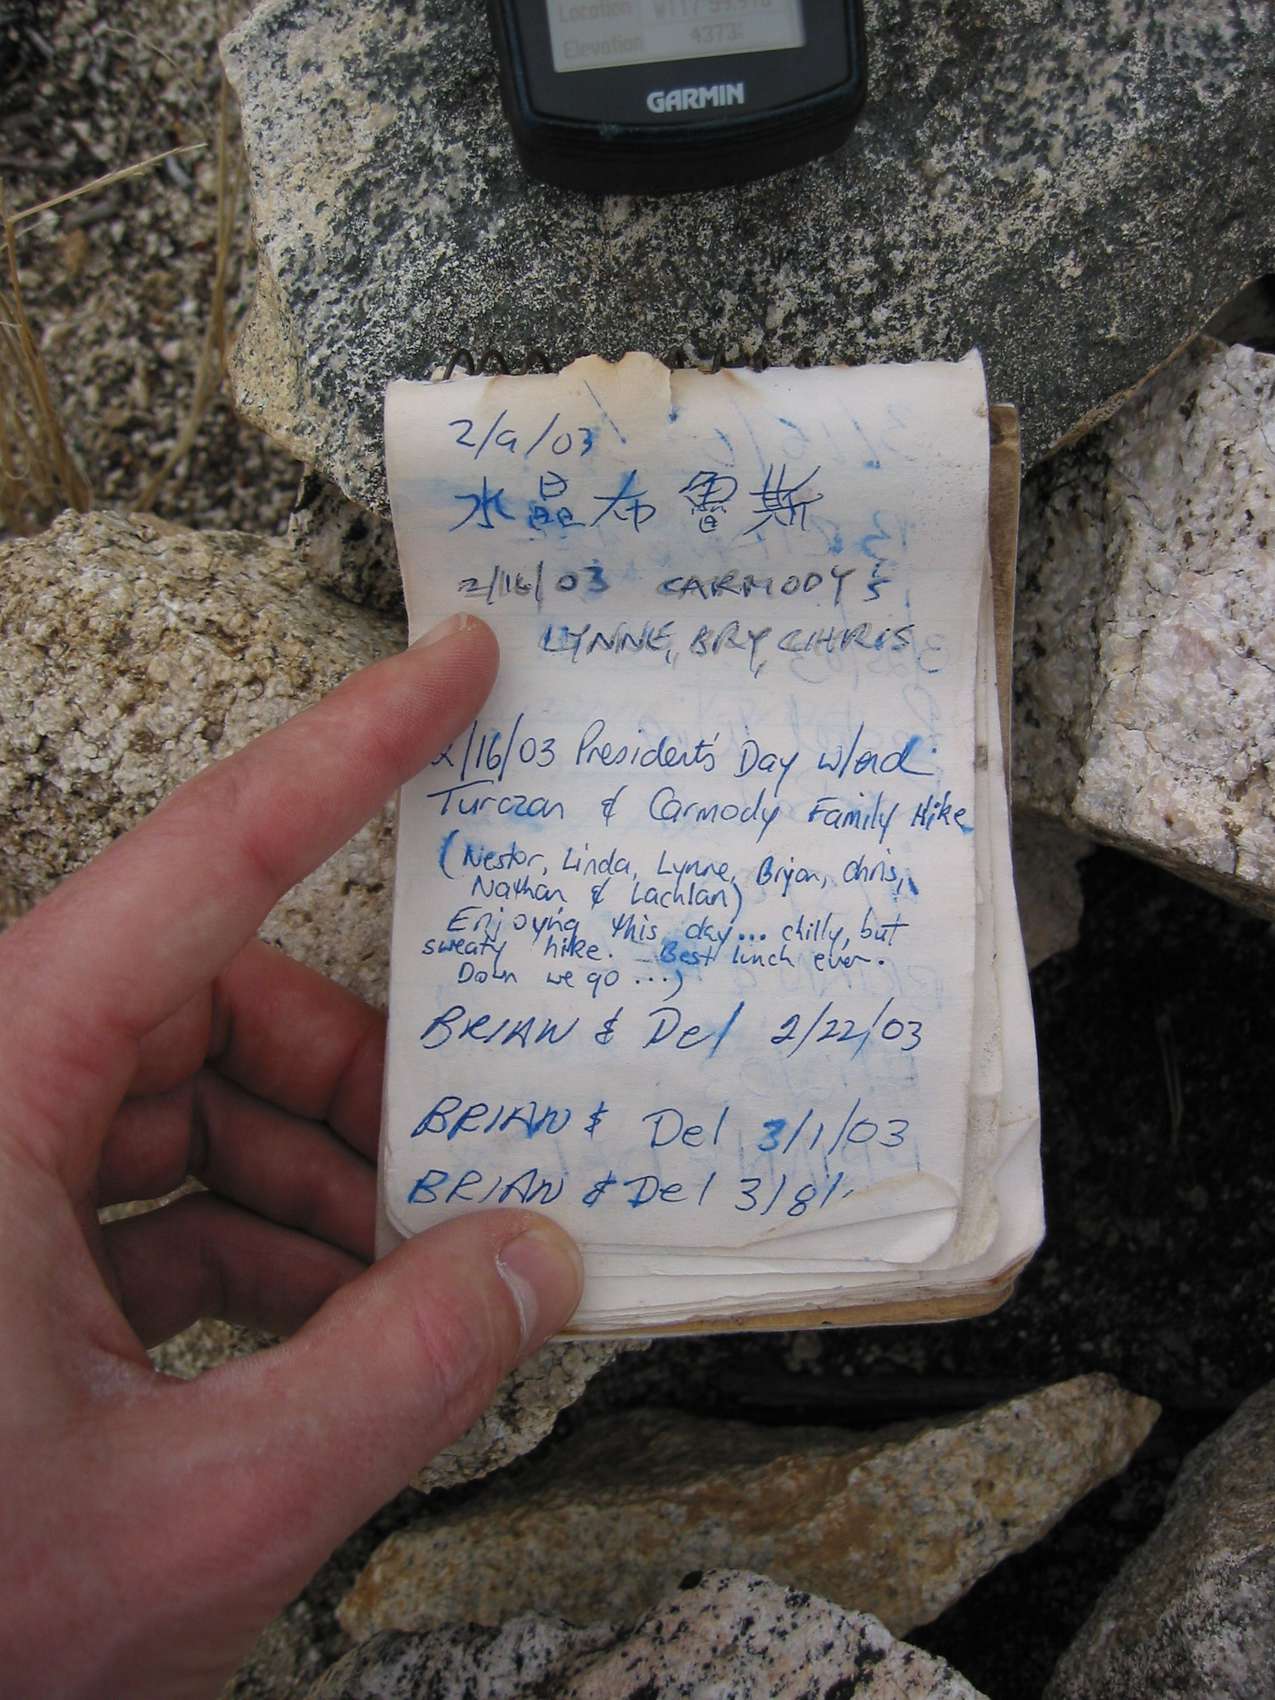 Location W117°59.976
Elevation 4373
GARMIN
2/9/03
水晶布魯斯
2/16/03 CARMODY'S
LYNNE, BRY, CHRIS
2/16/03 President's Day w/end
Turczan & Carmody Family Hike
(Nestor, Linda, Lynne, Bryan, Chris,
Nathan & Lachlan)
Enjoying this day... chilly, but
sweaty hike. Best lunch ever.
Down we go...
BRIAN & Del 2/22/03
BRIAN & Del 3/1/03
BRIAN & Del 3/8/